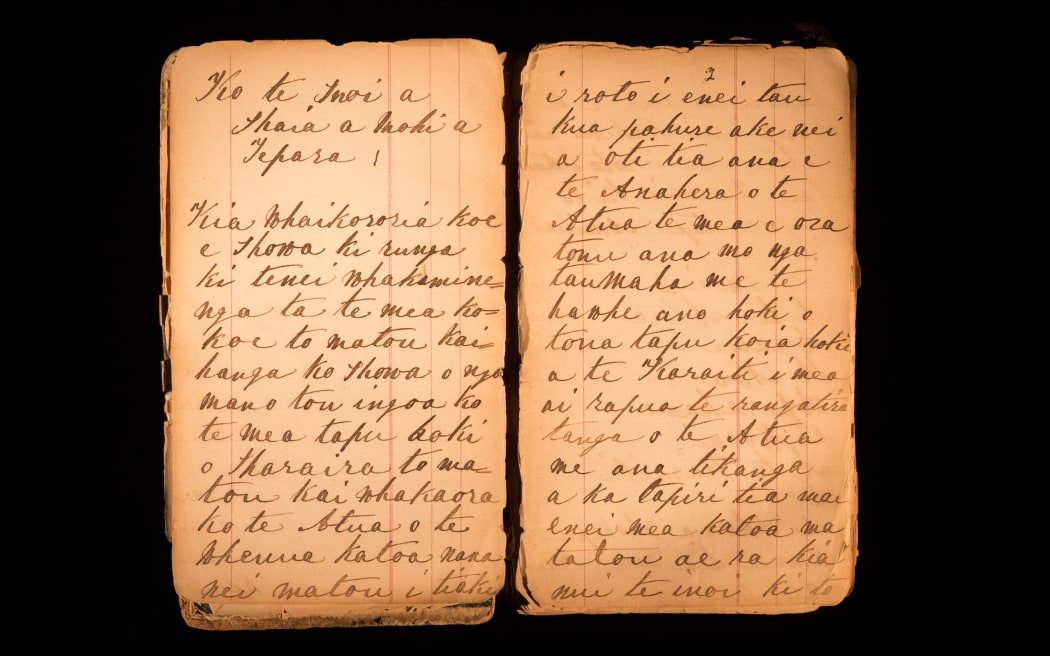 Ko te Inoi a
Ihaia a Mohi a
Tepara 1
Kia Whaikororia koe
e Ihowa ki runga
ki tenei Whakamine=
nga ta te mea ko=
koe to matou kai=
hanga ko Ihowa o nga
mano tou ingoa ko
te mea tapu hoki
o Iharaira to ma=
tou kai Whakaora
ko te Atua o te
Whenua katoa nana
nei matou i tiaki
2
i roto i enei tau
kua pahure ake nei
a oti tia ana e
te Anahera o te
Atua te mea e ora
tonu ana mo nga
taumaha me te
hawhe ano hoki o
tona tapu koia hoki
a te Karaiti i mea
ai rapua te rangatira
tanga o te Atua
me ana tikanga
a ka tapiri tia mai
enei mea katoa ma
tatou ae ra kia
nui te inoi ki to